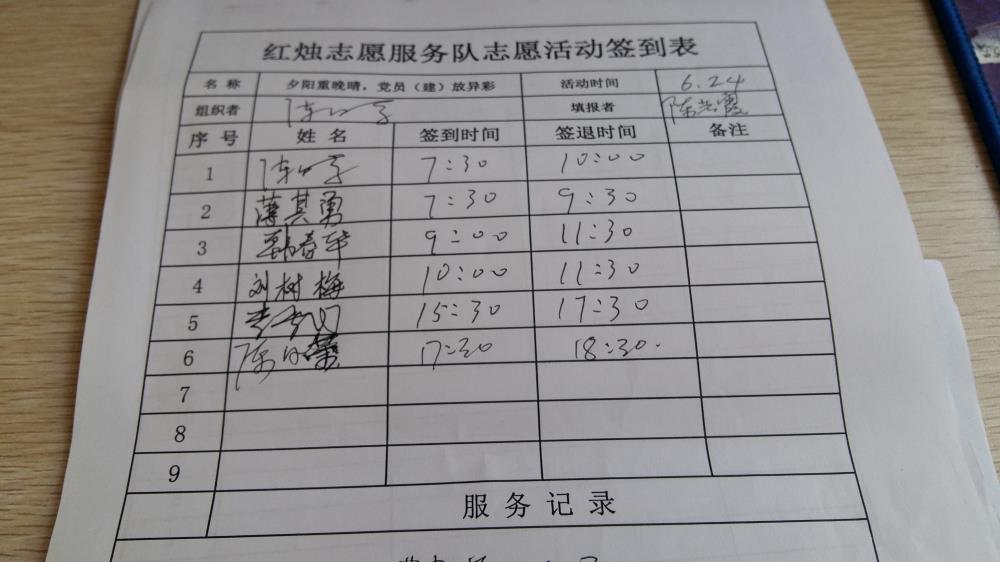 红烛志愿服务队志愿活动签到表
名称 夕阳重晚晴，党员（建）放异彩 活动时间 6.24
组织者 填报者 陈兰霞
序号 姓名 签到时间 签退时间 备注
1 7:30 10:00
2 薄其勇 7:30 9:30
3 9:00 11:30
4 刘树梅 10:00 11:30
5 15:30 17:30
6 17:30 18:30
7
8
9
服务记录